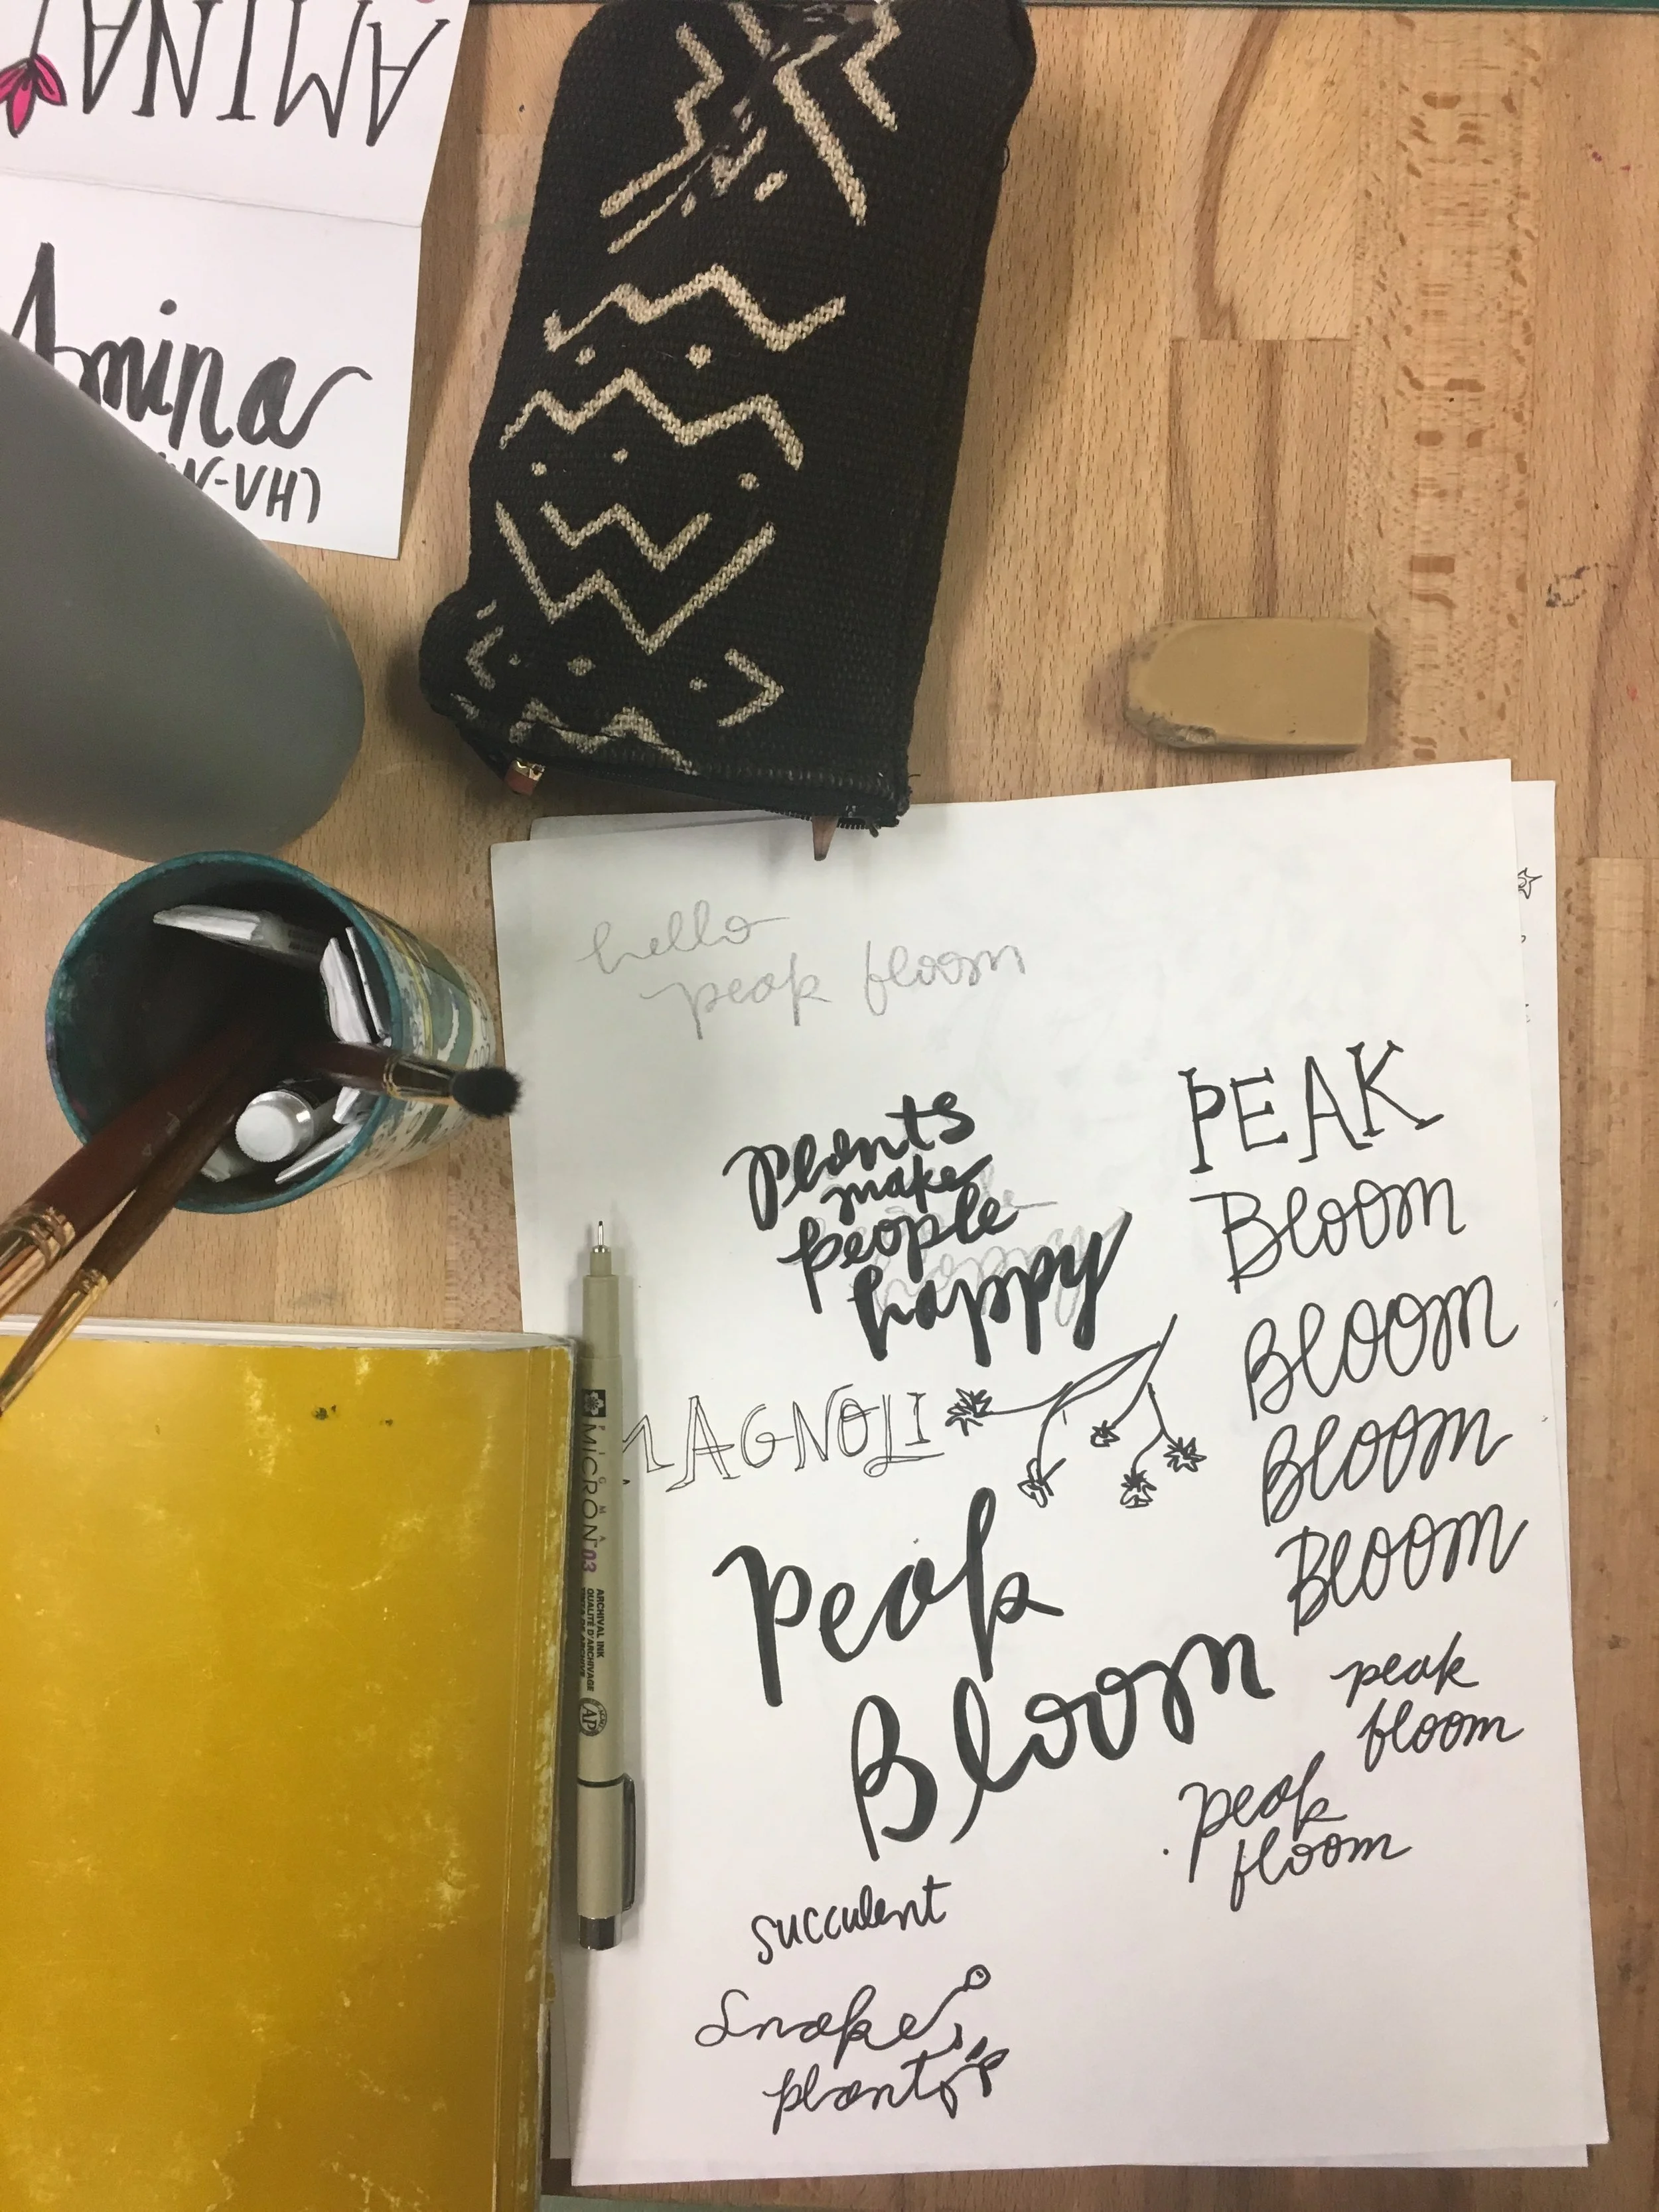 AMINA
Amina
hello
peak bloom
plants
make
people
happy
MAGNOLI
PEAK
Bloom
Bloom
Bloom
Bloom
Peak
Bloom
peak
bloom
peak
bloom
succulent
snake
plant
PIGMA
MICRON 03
ARCHIVAL INK
QUALITÉ D'ARCHIVAGE
TINTA DE ARCHIVE
AP